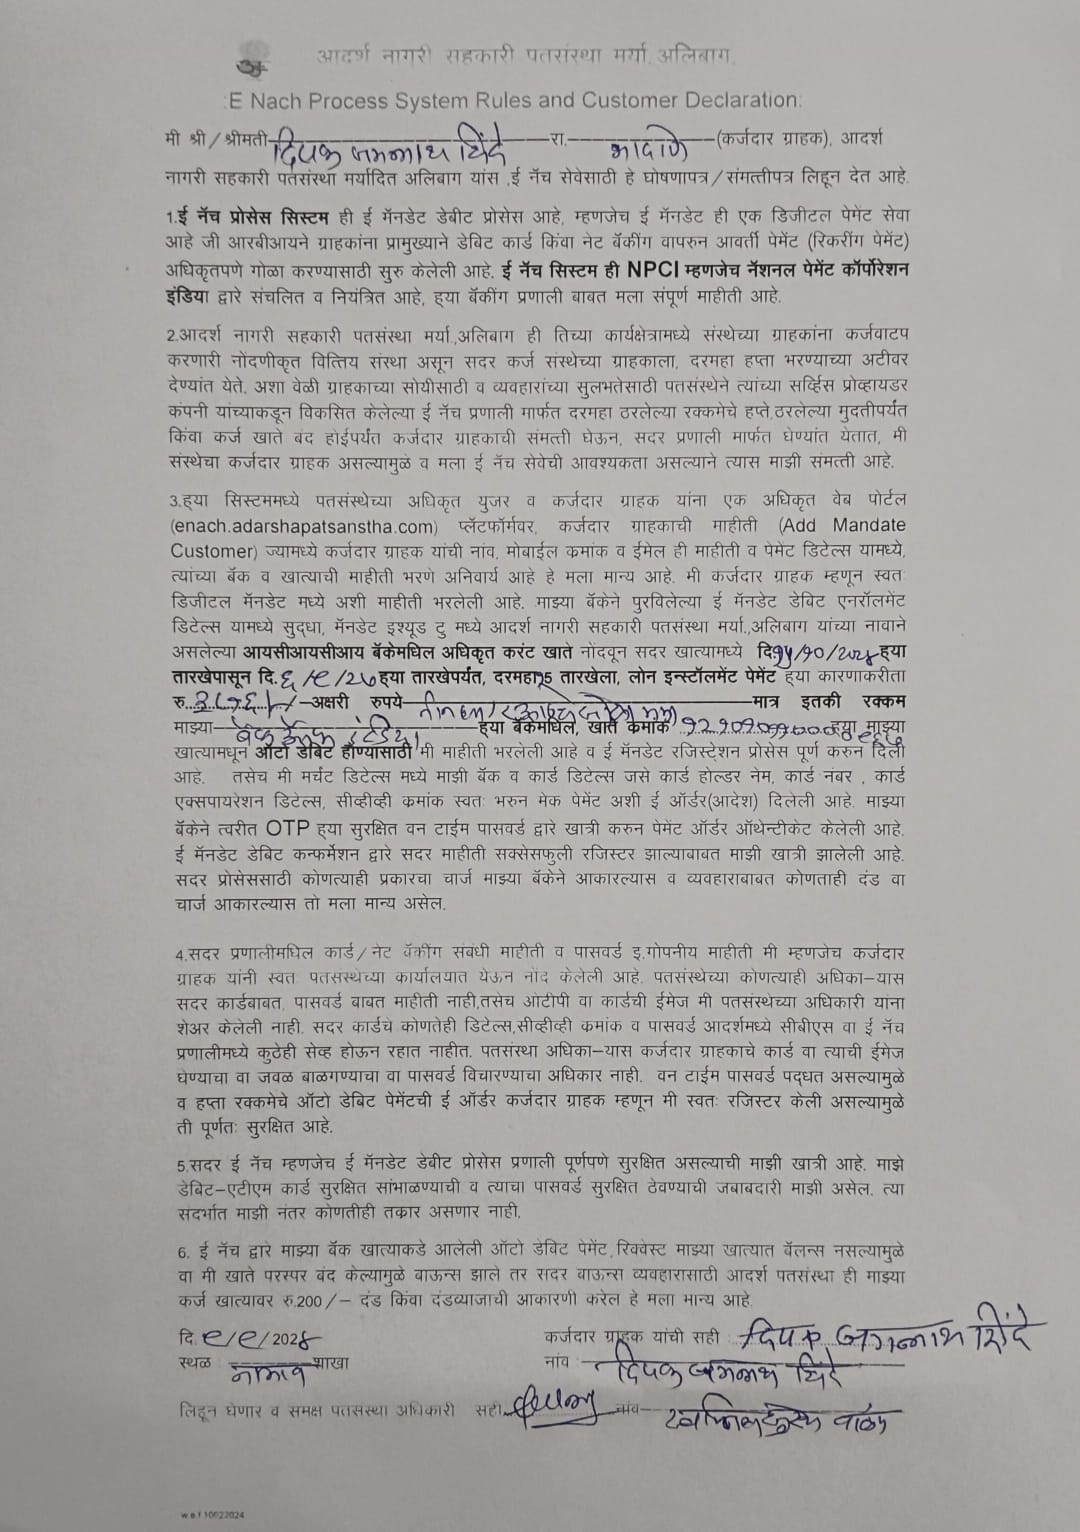 आदर्श नागरी सहकारी पतसंस्था मर्या. अलिबाग.
:E Nach Process System Rules and Customer Declaration:
मी श्री/श्रीमती दिपक जगन्नाथ शिंदे रा. भादाणे (कर्जदार ग्राहक), आदर्श
नागरी सहकारी पतसंस्था मर्यादित अलिबाग यांस ,ई नॅच सेवेसाठी हे घोषणापत्र/संमत्तीपत्र लिहून देत आहे.
1.ई नॅच प्रोसेस सिस्टम ही ई मॅनडेट डेबीट प्रोसेस आहे, म्हणजेच ई मॅनडेट ही एक डिजीटल पेमेंट सेवा
आहे जी आरबीआयने ग्राहकांना प्रामुख्याने डेबिट कार्ड किंवा नेट बॅकींग वापरुन आवर्ती पेमेंट (रिकरींग पेमेंट)
अधिकृतपणे गोळा करण्यासाठी सुरु केलेली आहे. ई नॅच सिस्टम ही NPCI म्हणजेच नॅशनल पेमेंट कॉर्पोरेशन
इंडिया द्वारे संचलित व नियंत्रित आहे, ह्या बॅकींग प्रणाली बाबत मला संपूर्ण माहीती आहे.
2.आदर्श नागरी सहकारी पतसंस्था मर्या.,अलिबाग ही तिच्या कार्यक्षेत्रामध्ये संस्थेच्या ग्राहकांना कर्जवाटप
करणारी नोंदणीकृत वित्तिय संस्था असून सदर कर्ज संस्थेच्या ग्राहकाला, दरमहा हप्ता भरण्याच्या अटीवर
देण्यांत येते. अशा वेळी ग्राहकाच्या सोयीसाठी व व्यवहारांच्या सुलभतेसाठी पतसंस्थेने त्यांच्या सर्व्हिस प्रोव्हायडर
कंपनी यांच्याकडून विकसित केलेल्या ई नॅच प्रणाली मार्फत दरमहा ठरलेल्या रक्कमेचे हप्ते,ठरलेल्या मुदतीपर्यंत
किंवा कर्ज खाते बंद होईपर्यंत कर्जदार ग्राहकाची संमत्ती घेऊन, सदर प्रणाली मार्फत घेण्यांत येतात, मी
संस्थेचा कर्जदार ग्राहक असल्यामुळे व मला ई नॅच सेवेची आवश्यकता असल्याने त्यास माझी संमत्ती आहे.
3.ह्या सिस्टममध्ये पतसंस्थेच्या अधिकृत युजर व कर्जदार ग्राहक यांना एक अधिकृत वेब पोर्टल
(enach.adarshapatsanstha.com) प्लॅटफॉर्मवर, कर्जदार ग्राहकाची माहीती (Add Mandate
Customer) ज्यामध्ये कर्जदार ग्राहक यांची नांव, मोबाईल कमांक व ईमेल ही माहीती व पेमेंट डिटेल्स यामध्ये,
त्यांच्या बॅक व खात्याची माहीती भरणे अनिवार्य आहे हे मला मान्य आहे. मी कर्जदार ग्राहक म्हणून स्वतः
डिजीटल मॅनडेट मध्ये अशी माहीती भरलेली आहे. माझ्या बॅकेने पुरविलेल्या ई मॅनडेट डेबिट एनरॉलमेंट
डिटेल्स यामध्ये सुद्धा, मॅनडेट इश्यूड टु मध्ये आदर्श नागरी सहकारी पतसंस्था मर्या.,अलिबाग यांच्या नावाने
असलेल्या आयसीआयसीआय बॅकेमधिल अधिकृत करंट खाते नोंदवून सदर खात्यामध्ये दि.१५/१०/२०२४ ह्या
तारखेपासून दि.६/९/२७ ह्या तारखेपर्यंत, दरमहा १५ तारखेला, लोन इन्स्टॉलमेंट पेमेंट ह्या कारणाकरीता
रु. –अक्षरी रुपये मात्र इतकी रक्कम
माझ्या बँक ऑफ इंडिया ह्या बॅकेमधिल, खाते कमांक ह्या माझ्या
खात्यामधून ऑटो डेबिट होण्यासाठी मी माहीती भरलेली आहे व ई मॅनडेट रजिस्ट्रेशन प्रोसेस पूर्ण करुन दिली
आहे. तसेच मी मर्चंट डिटेल्स मध्ये माझी बॅक व कार्ड डिटेल्स जसे कार्ड होल्डर नेम, कार्ड नंबर , कार्ड
एक्सपायरेशन डिटेल्स, सीव्हीव्ही कमांक स्वतः भरुन मेक पेमेंट अशी ई ऑर्डर(आदेश) दिलेली आहे. माझ्या
बॅकेने त्वरीत OTP ह्या सुरक्षित वन टाईम पासवर्ड द्वारे खात्री करुन पेमेंट ऑर्डर ऑथेन्टीकेट केलेली आहे.
ई मॅनडेट डेबिट कन्फर्मेशन द्वारे सदर माहीती सक्सेसफुली रजिस्टर झाल्याबाबत माझी खात्री झालेली आहे.
सदर प्रोसेससाठी कोणत्याही प्रकारचा चार्ज माझ्या बॅकेने आकारल्यास व व्यवहाराबाबत कोणताही दंड वा
चार्ज आकारल्यास तो मला मान्य असेल.
4.सदर प्रणालीमधिल कार्ड/नेट बॅकींग संबंधी माहीती व पासवर्ड इ.गोपनीय माहीती मी म्हणजेच कर्जदार
ग्राहक यांनी स्वतः पतसंस्थेच्या कार्यालयात येऊन नोंद केलेली आहे. पतसंस्थेच्या कोणत्याही अधिका–यास
सदर कार्डबाबत, पासवर्ड बाबत माहीती नाही,तसेच ओटीपी वा कार्डची ईमेज मी पतसंस्थेच्या अधिकारी यांना
शेअर केलेली नाही. सदर कार्डचे कोणतेही डिटेल्स,सीव्हीव्ही कमांक व पासवर्ड आदर्शमध्ये सीबीएस वा ई नॅच
प्रणालीमध्ये कुठेही सेव्ह होऊन रहात नाहीत. पतसंस्था अधिका–यास कर्जदार ग्राहकाचे कार्ड वा त्याची ईमेज
घेण्याचा वा जवळ बाळगण्याचा वा पासवर्ड विचारण्याचा अधिकार नाही. वन टाईम पासवर्ड पद्धत असल्यामुळे
व हप्ता रक्कमेचे ऑटो डेबिट पेमेंटची ई ऑर्डर कर्जदार ग्राहक म्हणून मी स्वतः रजिस्टर केली असल्यामुळे
ती पूर्णतः सुरक्षित आहे.
5.सदर ई नॅच म्हणजेच ई मॅनडेट डेबीट प्रोसेस प्रणाली पूर्णपणे सुरक्षित असल्याची माझी खात्री आहे. माझे
डेबिट–एटीएम कार्ड सुरक्षित सांभाळण्याची व त्याचा पासवर्ड सुरक्षित ठेवण्याची जबाबदारी माझी असेल. त्या
संदर्भात माझी नंतर कोणतीही तकार असणार नाही.
6. ई नॅच द्वारे माझ्या बॅक खात्याकडे आलेली ऑटो डेबिट पेमेंट रिक्वेस्ट माझ्या खात्यात बॅलन्स नसल्यामुळे
वा मी खाते परस्पर बंद केल्यामुळे बाऊन्स झाले तर सदर बाऊन्स व्यवहारासाठी आदर्श पतसंस्था ही माझ्या
कर्ज खात्यावर रु.200/– दंड किंवा दंडव्याजाची आकारणी करेल हे मला मान्य आहे.
दि.९/९/२०२४ कर्जदार ग्राहक यांची सही : दिपक जगन्नाथ शिंदे
स्थळ : शाखा नांव :– दिपक जगन्नाथ शिंदे
लिहून घेणार व समक्ष पतसंस्था अधिकारी सही नांव–
w.e.f 10022024